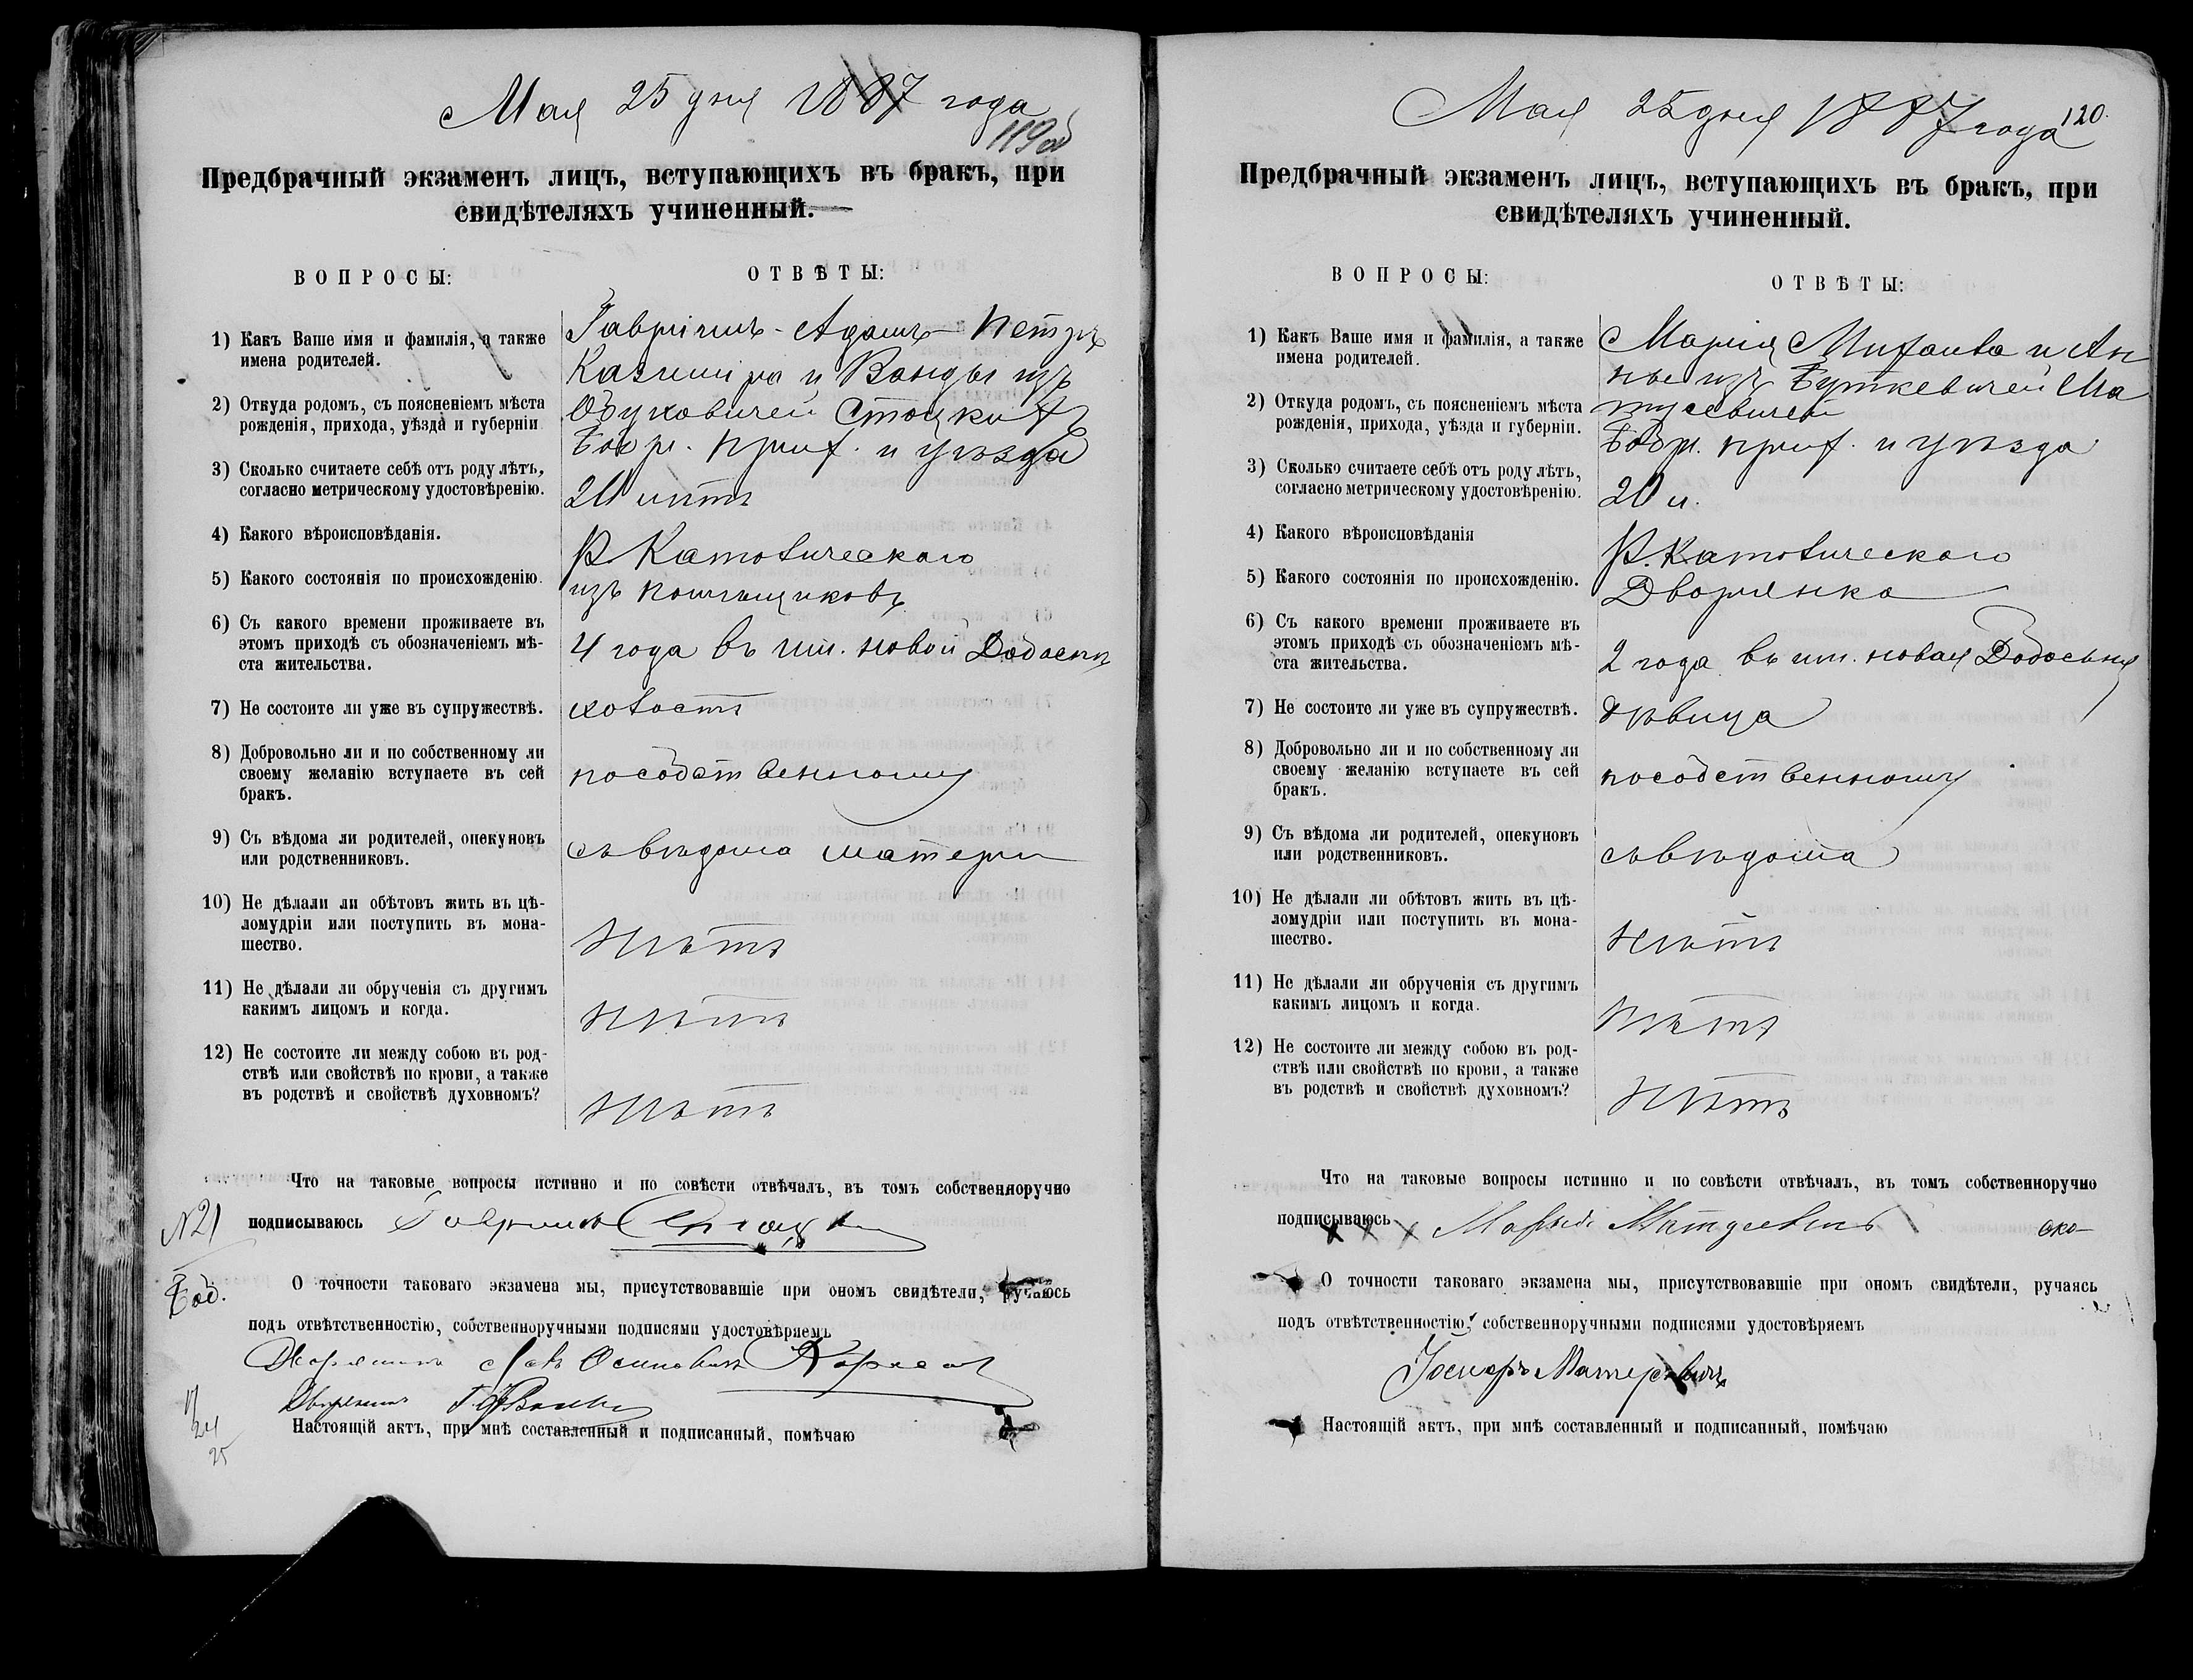 Мая 25 дня 1887 года
119об
Предбрачный экзаменъ лицъ, вступающихъ въ бракъ, при
свидѣтеляхъ учиненный.
ВОПРОСЫ:
ОТВѢТЫ:
1) Какъ Ваше имя и фамилія, а также
имена родителей.
Гавріилъ-Адамъ-Петръ
Казиміра и Ванды изъ
2) Откуда родомъ, съ поясненіемъ мѣста
рожденія, прихода, уѣзда и губерніи
Обуховичей Стоцкихъ
Бобр. прих. и уѣзда
3) Сколько считаете себѣ отъ роду лѣтъ,
согласно метрическому удостовѣренію.
лѣтъ
4) Какого вѣроисповѣданія.
Р. Католическаго
5) Какого состоянія по происхожденію.
изъ помѣщиковъ
6) Съ какого времени проживаете въ
этомъ приходѣ съ обозначеніемъ мѣ-
ста жительства.
4 года въ им. новой
7) Не состоите ли уже въ супружествѣ.
холостъ
8) Добровольно ли и по собственному ли
своему желанію вступаете въ сей
бракъ.
по собственному
9) Съ вѣдома ли родителей, опекуновъ
или родственниковъ.
съ вѣдома матери
10) Не дѣлали ли обѣтовъ жить въ цѣ-
ломудріи или поступить въ мона-
шество.
Нѣтъ
11) Не дѣлали ли обрученія съ другимъ
какимъ лицомъ и когда.
Нѣтъ
12) Не состоите ли между собою въ род-
ствѣ или свойствѣ по крови, а также
въ родствѣ и свойствѣ духовномъ?
Нѣтъ
Что на таковые вопросы истинно и по совѣсти отвѣчалъ, въ томъ собственноручно
N21
подписываюсь Гавріилъ
Боб.
О точности таковаго экзамена мы, присутствовавшіе при ономъ свидѣтели, ручаюсь
подъ отвѣтственностію, собственноручными подписями удостовѣряемъ
Дворянинъ Осиповичъ
Дворянинъ
Настоящій актъ, при мнѣ составленный и подписанный, помѣчаю
24
25
Мая 25 дня 1887 года
120.
Предбрачный экзаменъ лицъ, вступающихъ въ бракъ, при
свидѣтеляхъ учиненный.
ВОПРОСЫ:
ОТВѢТЫ:
1) Какъ Ваше имя и фамилія, а также
имена родителей.
Марія Михаила и Ан
ны изъ Буткевичей Ма
2) Откуда родомъ, съ поясненіемъ мѣста
рожденія, прихода, уѣзда и губерніи.
тусевичей
Бобр. прих. и уѣзда
3) Сколько считаете себѣ отъ роду лѣтъ,
согласно метрическому удостовѣренію.
20 л.
4) Какого вѣроисповѣданія
Р. Католическаго
5) Какого состоянія по происхожденію.
Дворянка
6) Съ какого времени проживаете въ
этомъ приходѣ съ обозначеніемъ мѣ-
ста жительства.
2 года въ им. новая
7) Не состоите ли уже въ супружествѣ.
дѣвица
8) Добровольно ли и по собственному ли
своему желанію вступаете въ сей
бракъ.
по собственному
9) Съ вѣдома ли родителей, опекуновъ
или родственниковъ.
съ вѣдома
10) Не дѣлали ли обѣтовъ жить въ цѣ-
ломудріи или поступить въ мона-
шество.
Нѣтъ
11) Не дѣлали ли обрученія съ другимъ
какимъ лицомъ и когда.
Нѣтъ
12) Не состоите ли между собою въ род-
ствѣ или свойствѣ по крови, а также
въ родствѣ и свойствѣ духовномъ?
Нѣтъ
Что на таковые вопросы истинно и по совѣсти отвѣчалъ, въ томъ собственноручно
подписываюсь x x x Матусевичъ
О точности таковаго экзамена мы, присутствовавшіе при ономъ свидѣтели, ручаясь
подъ отвѣтственностію, собственноручными подписями удостовѣряемъ
Настоящій актъ, при мнѣ составленный и подписанный, помѣчаю